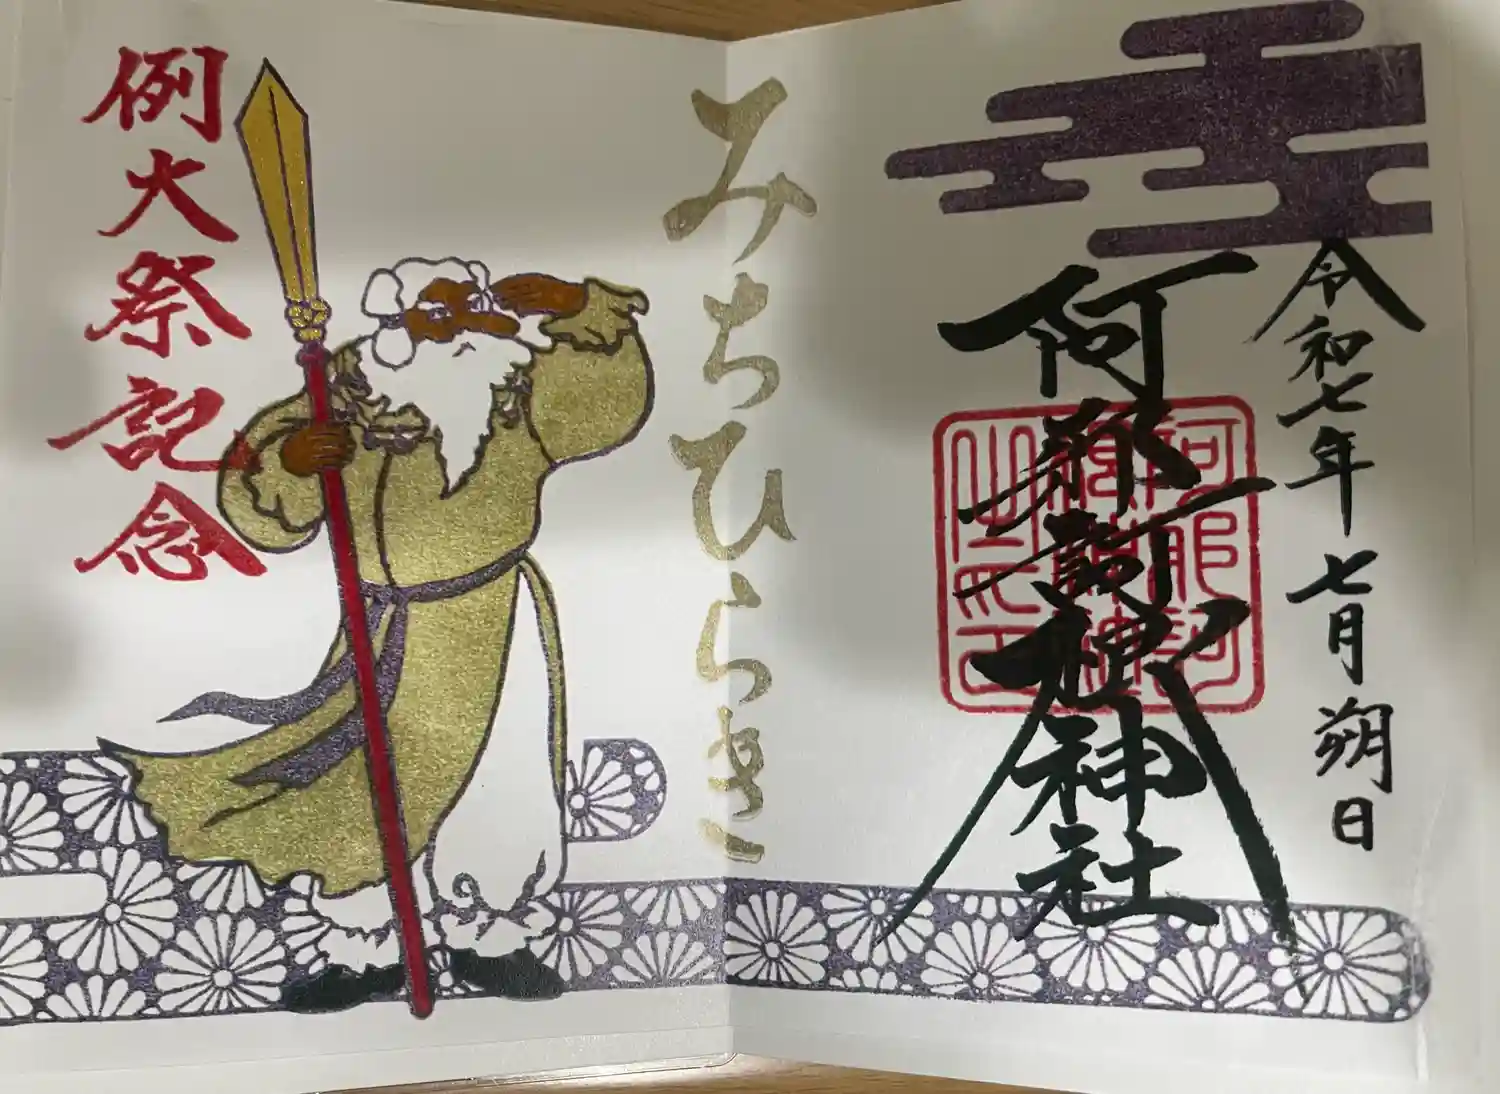 令和七年 七月 朔日
阿邪訶根神社
みちひらき
例大祭記念